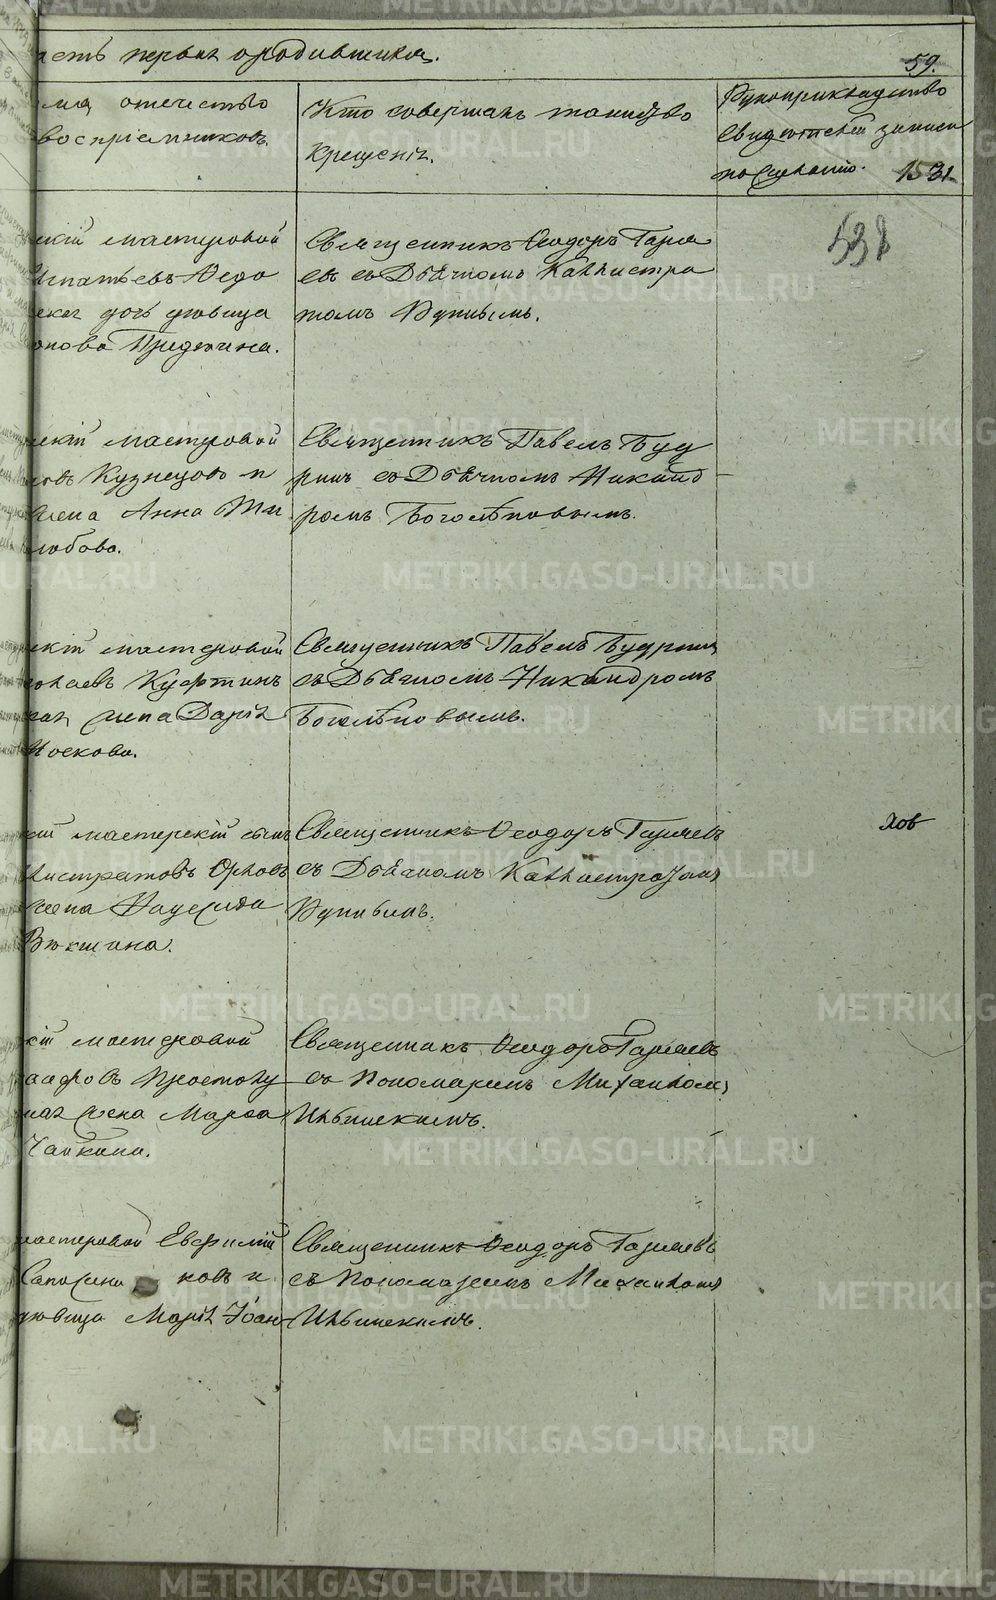 асть первая о родившихся.
59.
имя, отечество
воспріемниковъ.
Кто совершалъ таинство
крещенія.
Рукоприкладство
свидѣтелей записи
по желанію.
1531
538
скій мастеровой
Игнатьевъ Ѳедо
ская дочь дѣвица
Священникъ Ѳеодоръ Гаря
евъ съ Дьячкомъ Каллистра
томъ
скій мастеровой
Кузнецовъ и
жена Анна
любова.
Священникъ Павелъ Буд
ринъ съ Дьячкомъ Никанд
ромъ Боголѣповымъ.
скій мастеровой
колаевъ
ская жена Дарья
Москова.
Священникъ Павелъ Будринъ
съ Дьячкомъ Никандромъ
Боголѣповымъ.
кій мастерскій сынъ
листратовъ Орловъ
жена
Вѣкшина.
Священникъ Ѳеодоръ Гаряевъ
съ Дьячкомъ Каллистратомъ
ховъ
кій мастеровой
ная жена Марѳа
Чайкина.
Священникъ Ѳеодоръ Гаряевъ
съ Пономаремъ Михаиломъ
Ильинскимъ.
мастеровой Евфимій
Сапожниковъ и
дѣвица Марія Іоан
Священникъ Ѳеодоръ Гаряевъ
съ Пономаремъ Михаиломъ
Ильинскимъ.
METRIKI.GASO-URAL.RU